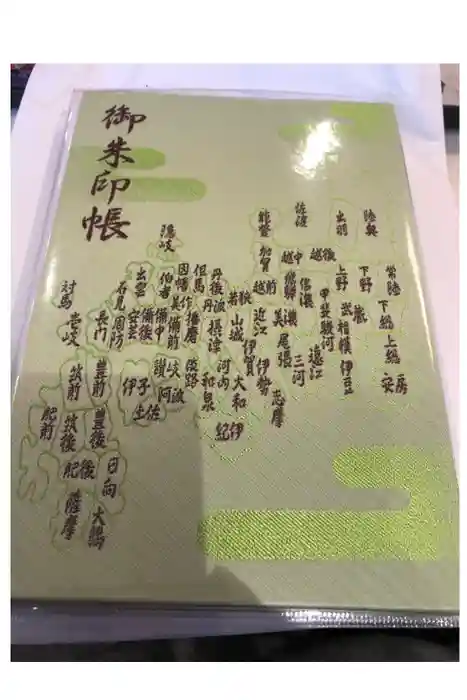 御朱印帳
陸奥
出羽
佐渡
能登
加賀
越中
越後
越前
飛騨
信濃
上野
下野
常陸
下総
上総
安房
武蔵
相模
伊豆
甲斐
駿河
遠江
三河
尾張
美濃
近江
伊賀
伊勢
志摩
若狭
山城
大和
紀伊
河内
和泉
摂津
丹波
丹後
但馬
播磨
淡路
隠岐
因幡
美作
備前
伯耆
備中
備後
出雲
安芸
石見
周防
長門
讃岐
阿波
伊予
土佐
対馬
壱岐
筑前
豊前
豊後
筑後
肥前
肥後
日向
大隅
薩摩